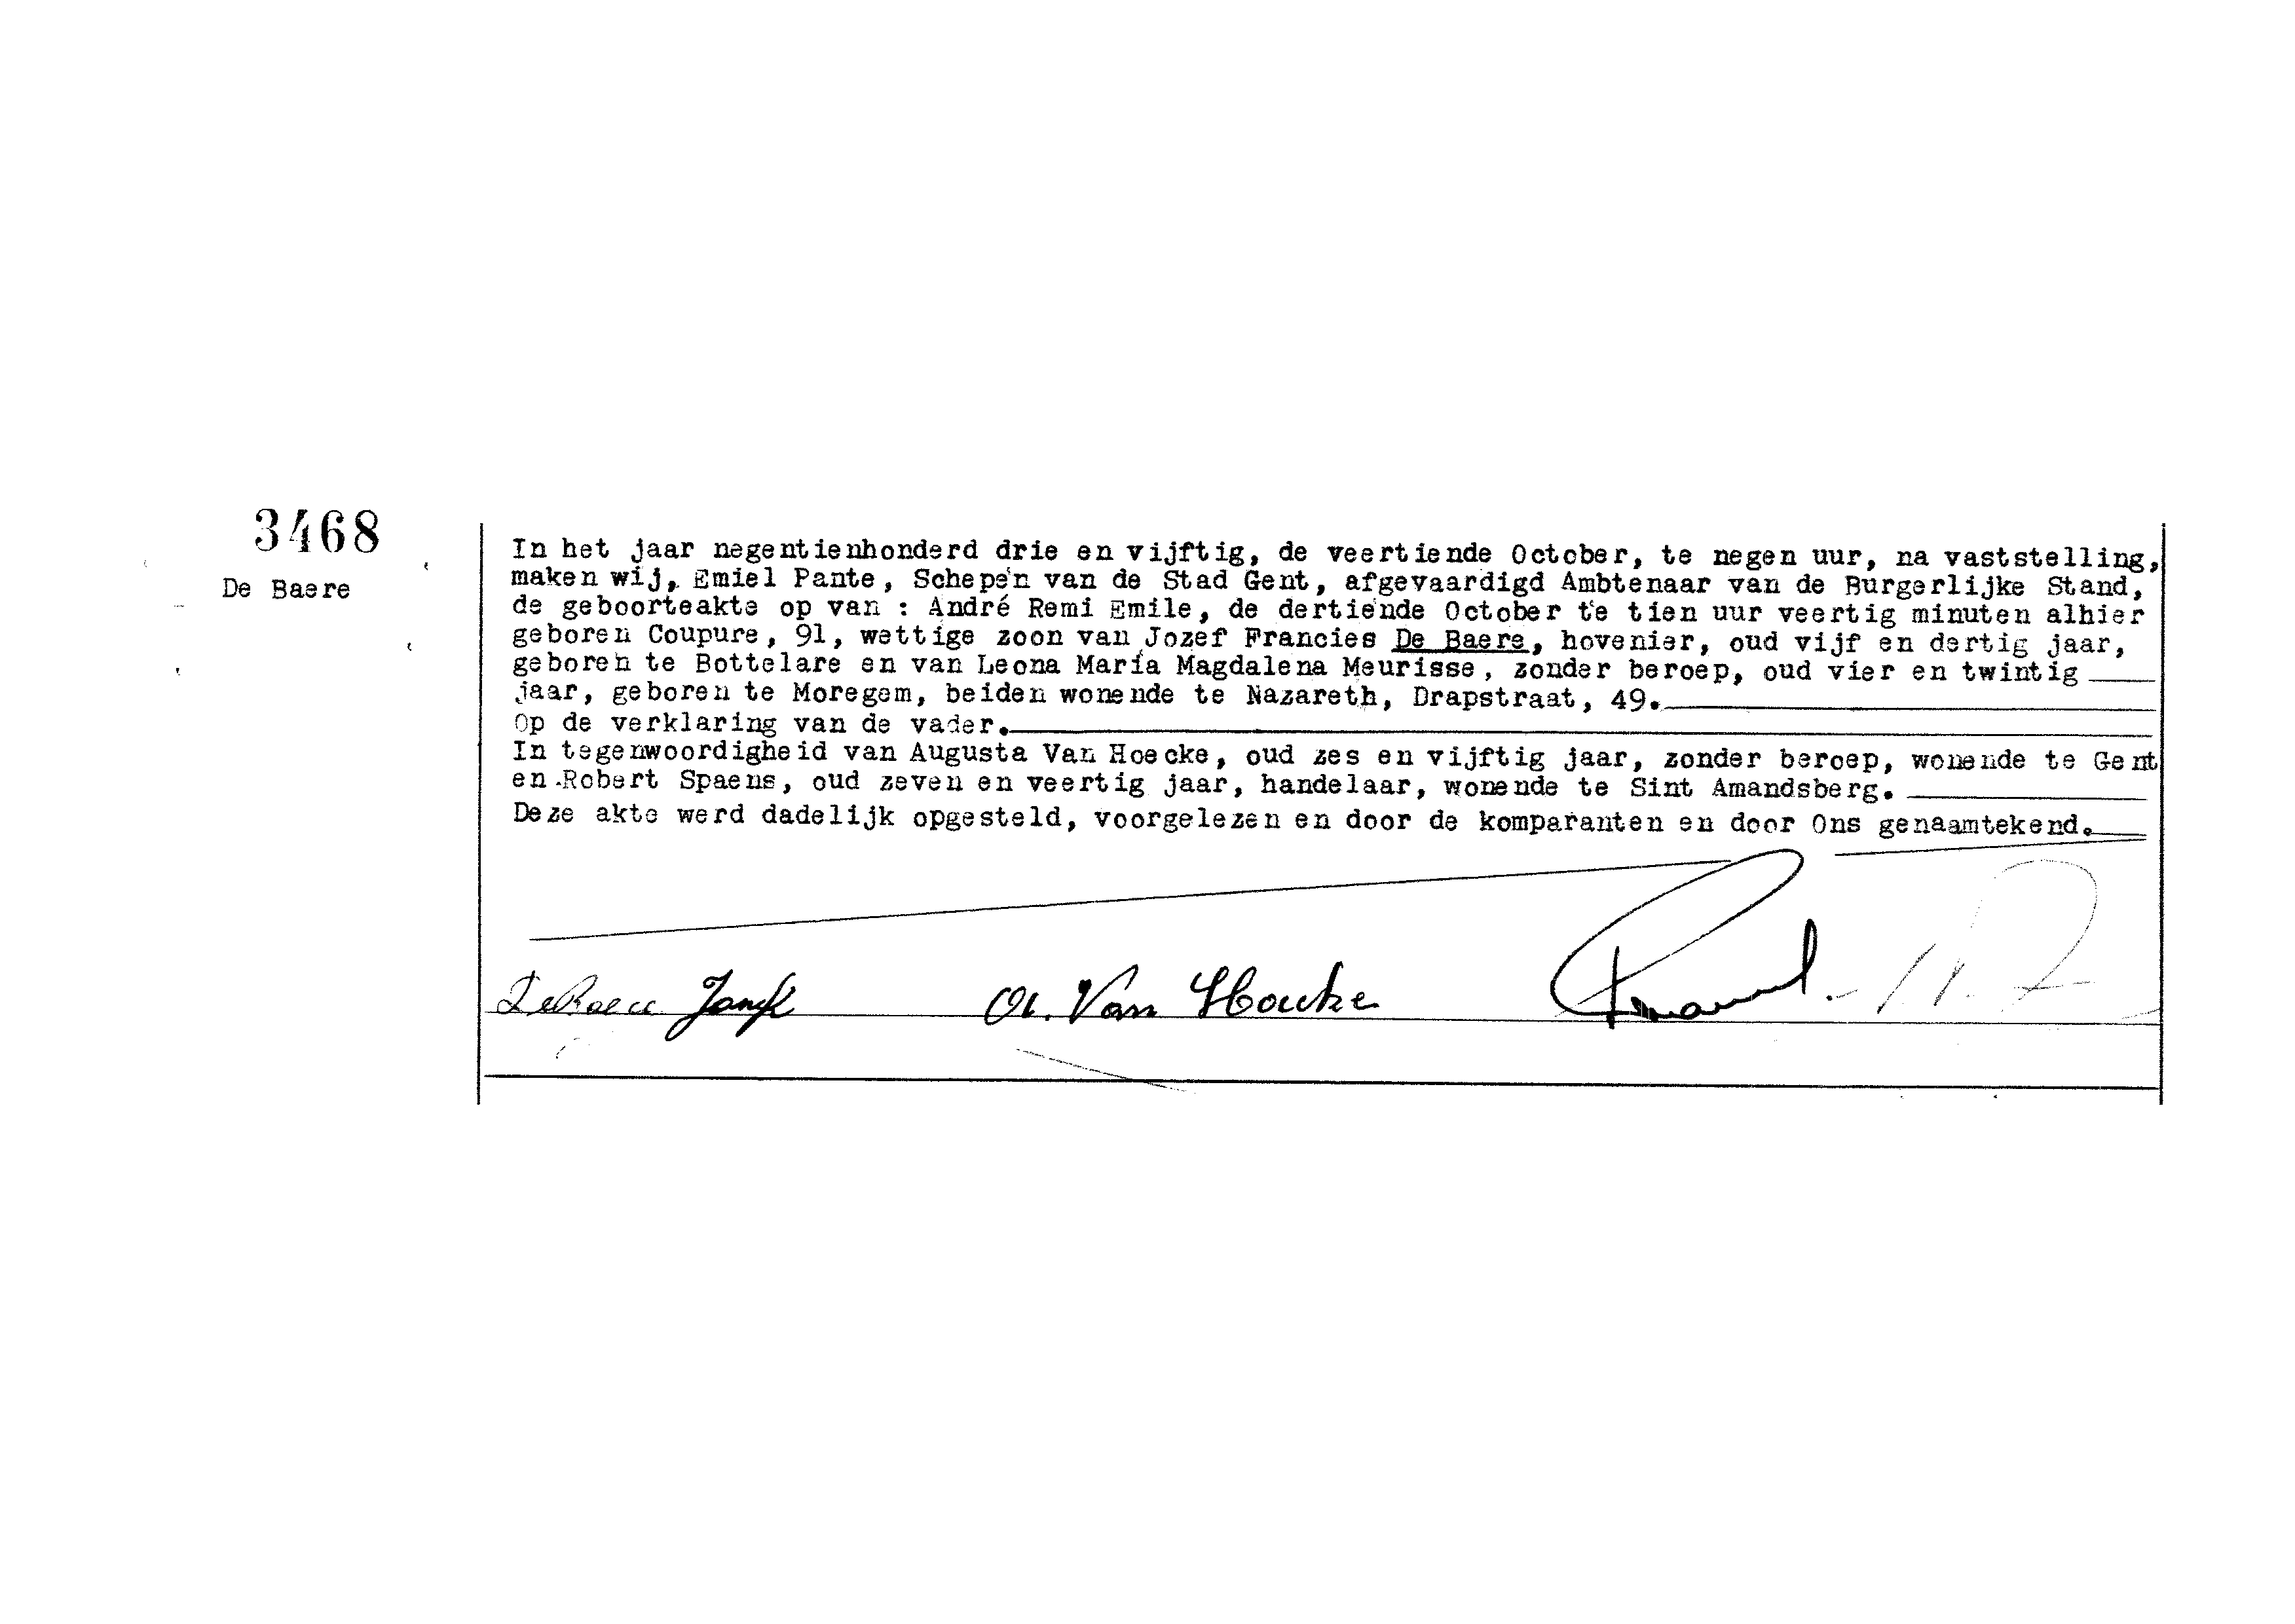 3468
De Baere
In het jaar negentienhonderd drie en vijftig, de veertiende October, te negen uur, na vaststelling,
maken wij, Emiel Pante, Schepen van de Stad Gent, afgevaardigd Ambtenaar van de Burgerlijke Stand,
de geboorteakte op van : André Remi Emile, de dertiende October te tien uur veertig minuten alhier
geboren Coupure, 91, wettige zoon van Jozef Francies De Baere, hovenier, oud vijf en dertig jaar,
geboren te Bottelare en van Leona Maria Magdalena Meurisse, zonder beroep, oud vier en twintig
jaar, geboren te Moregem, beiden wonende te Nazareth, Drapstraat, 49.
Op de verklaring van de vader.
In tegenwoordigheid van Augusta Van Hoecke, oud zes en vijftig jaar, zonder beroep, wonende te Gent
en Robert Spaens, oud zeven en veertig jaar, handelaar, wonende te Sint Amandsberg.
Deze akte werd dadelijk opgesteld, voorgelezen en door de komparanten en door Ons genaamtekend.
A. Van Hoecke